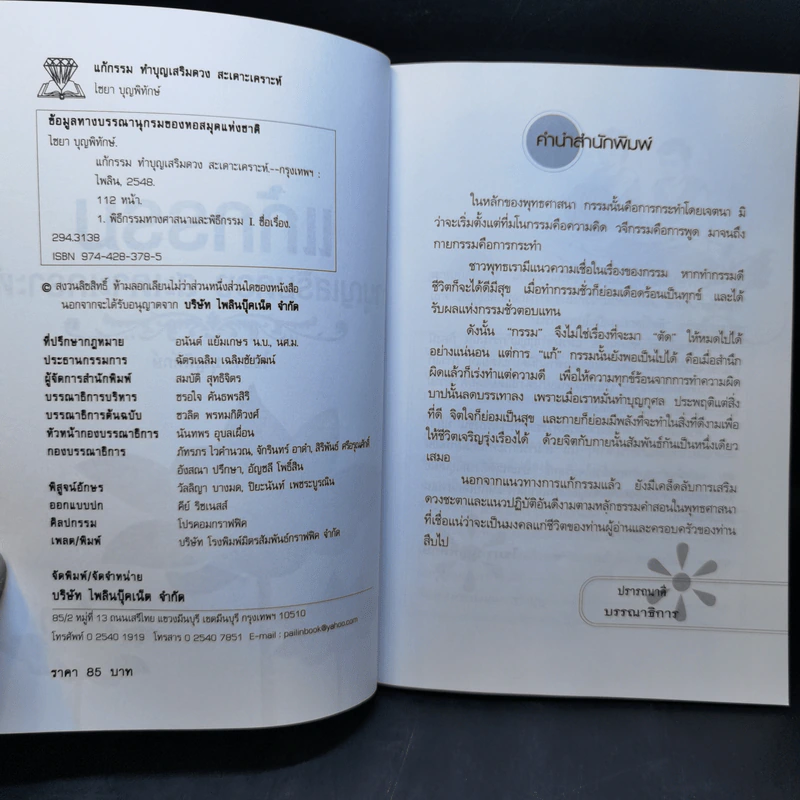 แก้กรรม ทำบุญเสริมดวง สะเดาะเคราะห์
ไชยา บุญพิทักษ์
ข้อมูลทางบรรณานุกรมของหอสมุดแห่งชาติ
ไชยา บุญพิทักษ์.
แก้กรรม ทำบุญเสริมดวง สะเดาะเคราะห์.--กรุงเทพฯ :
ไพลิน, 2548.
112 หน้า.
1. พิธีกรรมทางศาสนาและพิธีกรรม I. ชื่อเรื่อง.
294.3138
ISBN 974-428-378-5
© สงวนลิขสิทธิ์ ห้ามลอกเลียนไม่ว่าส่วนหนึ่งส่วนใดของหนังสือ
นอกจากจะได้รับอนุญาตจาก บริษัท ไพลินบุ๊คเน็ต จำกัด
ที่ปรึกษากฎหมาย อนันต์ แย้มเกษร น.บ., นศ.ม.
ประธานกรรมการ ฉัตรเฉลิม เฉลิมชัยวัฒน์
ผู้จัดการสำนักพิมพ์ สมบัติ สุทธิจิตร
บรรณาธิการบริหาร ธรอใจ คันธพรสิริ
บรรณาธิการต้นฉบับ ชวลิต พรหมกิติวงศ์
หัวหน้ากองบรรณาธิการ นันทพร อุบลเผื่อน
กองบรรณาธิการ ภัทรภร ไวคำนวณ, จักรินทร์ อาดำ, สิริพันธ์ ศรีอรุณศักดิ์
อังสณา ปรึกษา, อัญชลี โพธิ์สิน
พิสูจน์อักษร วัลลิญา บางมด, ปิยะนันท์ เพชระบูรณิน
ออกแบบปก คีย์ รีซเนสส์
ศิลปกรรม โปรคอมกราฟฟิค
เพลต/พิมพ์ บริษัท โรงพิมพ์มิตรสัมพันธ์กราฟฟิค จำกัด
จัดพิมพ์/จัดจำหน่าย
บริษัท ไพลินบุ๊คเน็ต จำกัด
85/2 หมู่ที่ 13 ถนนเสรีไทย แขวงมีนบุรี เขตมีนบุรี กรุงเทพฯ 10510
โทรศัพท์ 0 2540 1919 โทรสาร 0 2540 7851 E-mail : pailinbook@yahoo.com
ราคา 85 บาท
คำนำสำนักพิมพ์
ในหลักของพุทธศาสนา กรรมนั้นคือการกระทำโดยเจตนา มิ
ว่าจะเริ่มตั้งแต่ที่มโนกรรมคือความคิด วจีกรรมคือการพูด มาจนถึง
กายกรรมคือการกระทำ
ชาวพุทธเรามีแนวความเชื่อในเรื่องของกรรม หากทำกรรมดี
ชีวิตก็จะได้ดีมีสุข เมื่อทำกรรมชั่วก็ย่อมเดือดร้อนเป็นทุกข์ และได้
รับผลแห่งกรรมชั่วตอบแทน
ดังนั้น "กรรม" จึงไม่ใช่เรื่องที่จะมา "ตัด" ให้หมดไปได้
อย่างแน่นอน แต่การ "แก้" กรรมนั้นยังพอเป็นไปได้ คือเมื่อสำนึก
ผิดแล้วก็เร่งทำแต่ความดี เพื่อให้ความทุกข์ร้อนจากการทำความผิด
บาปนั้นลดบรรเทาลง เพราะเมื่อเราหมั่นทำบุญกุศล ประพฤติแต่สิ่ง
ที่ดี จิตใจก็ย่อมเป็นสุข และกายก็ย่อมมีพลังที่จะทำในสิ่งที่ดีงามเพื่อ
ให้ชีวิตเจริญรุ่งเรืองได้ ด้วยจิตกับกายนั้นสัมพันธ์กันเป็นหนึ่งเดียว
เสมอ
นอกจากแนวทางการแก้กรรมแล้ว ยังมีเคล็ดลับการเสริม
ดวงชะตาและแนวปฏิบัติอันดีงามตามหลักธรรมคำสอนในพุทธศาสนา
ที่เชื่อแน่ว่าจะเป็นมงคลแก่ชีวิตของท่านผู้อ่านและครอบครัวของท่าน
สืบไป
ปรารถนาดี
บรรณาธิการ